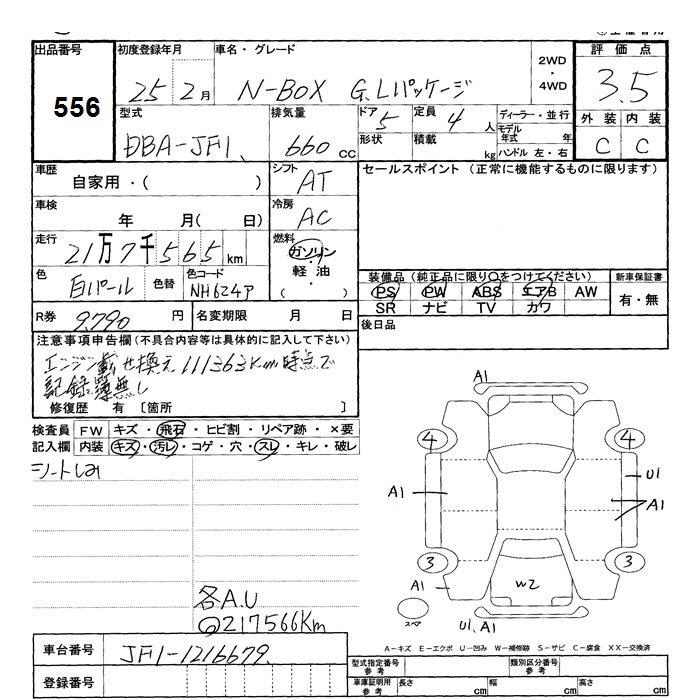 出品番号 初度登録年月 車名・グレード 2WD・4WD 評価点
556 25年2月 N-BOX G.Lパッケージ 3.5
型式 排気量 ドア 定員 ディーラー・並行 外装 内装
DBA-JF1 660cc 5 4人 モデル年式 年 C C
形状 積載 kg ハンドル 左・右
車歴 シフト セールスポイント (正常に機能するものに限ります)
自家用・( ) AT
車検 冷房
年 月( 日) AC
走行 燃料
21万7千565km ガソリン
軽油
( )
色 色替 色コード 装備品(純正品に限り○をつけてください) 新車保証書
白パール NH624P PS PW ABS エアB AW 有・無
SR ナビ TV カワ
R券 9.790円 名変期限 月 日 後日品
注意事項申告欄(不具合内容等は具体的に記入して下さい)
エンジン載せ換え111363Km時点で
記録簿無し
修復歴 有 [箇所 ]
検査員 FW キズ・飛石・ヒビ割・リペア跡・×要
記入欄 内装 キズ・汚レ・コゲ・穴・スレ・キレ・破レ
シートしみ
各A.U
◎217566Km
A1
4 4
U1
A1 A1
3 3
A1 W2
スペア
U1、A1
A-キズ E-エクボ U-凹み W-補修跡 S-サビ C-腐食 XX-交換済
車台番号 JF1-1216679 型式指定番号 参考 類別区分番号 参考
登録番号 車庫証明用 参考 長さ cm 幅 cm 高さ cm